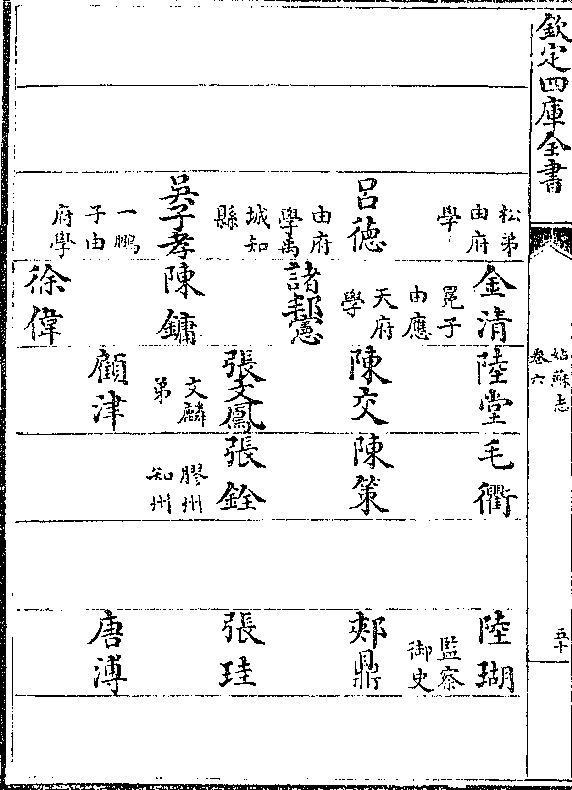 欽定四庫全書
姑蘇志
卷六
五十
松弟
由府
學
呂徳
由府
學禹
城知
縣
吳子孝
一鵬
子由
府學
金清
冕子
由應
天府
學
諸邦憲
陳鏞
徐偉
陸堂
陳交
張文鳳
文麟
弟
顧津
毛衢
陳策
張銓
膠州
知州
陸瑚
監察
御史
郟鼎
張珪
唐溥